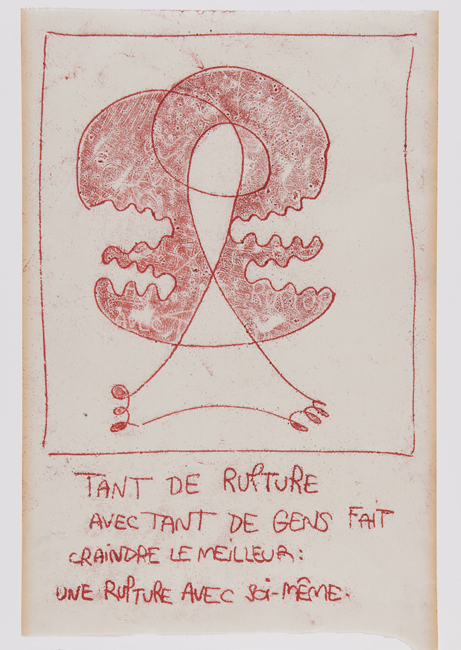 TANT DE RUPTURE
AVEC TANT DE GENS FAIT
CRAINDRE LE MEILLEUR :
UNE RUPTURE AVEC SOI-MÊME.